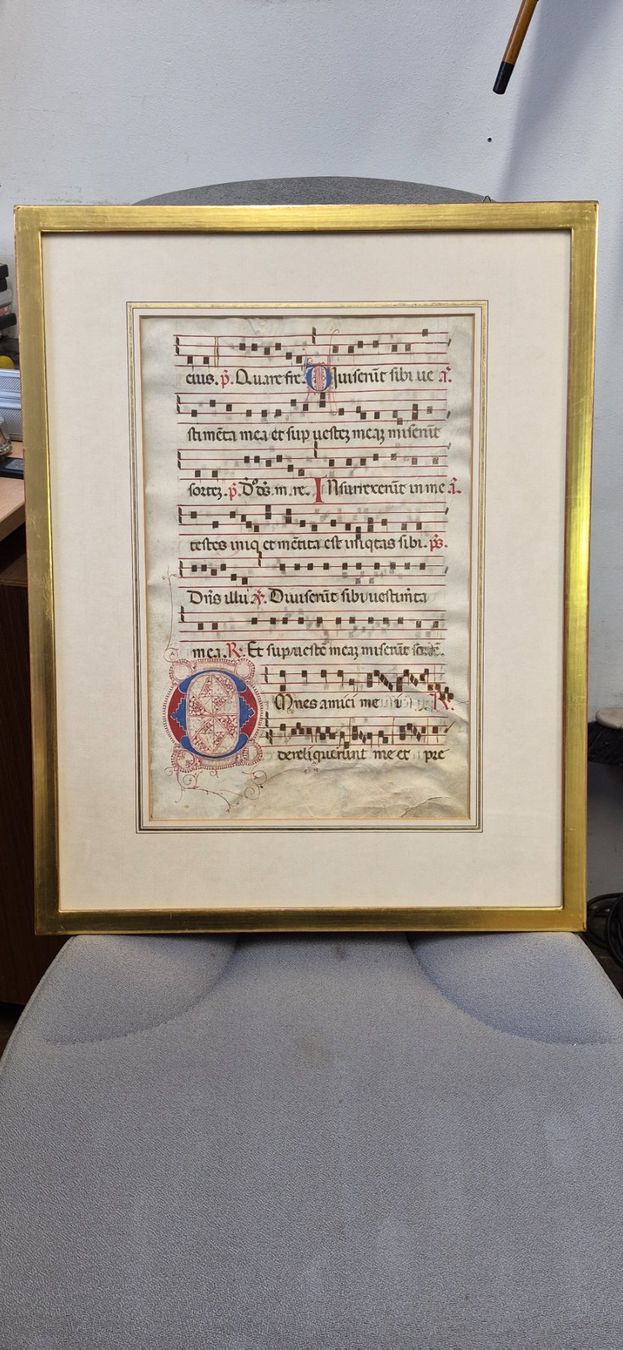 eius. p̄. Quare fre. Diuiserūt sibi ue a͞.
stimēta mea et sup uestez meaz miserūt
sortez. p̄. D̄s ds̄. m. re. Insurrexerūt in me a͞.
testes iniq et mētita est iniqtas sibi. ps̄.
Dn̄s illu ℣. Diuiserūt sibi uestim̄ta
mea. R. Et sup uestē meaz miserūt
Omnes amici me R.
dereliquerunt me et pre